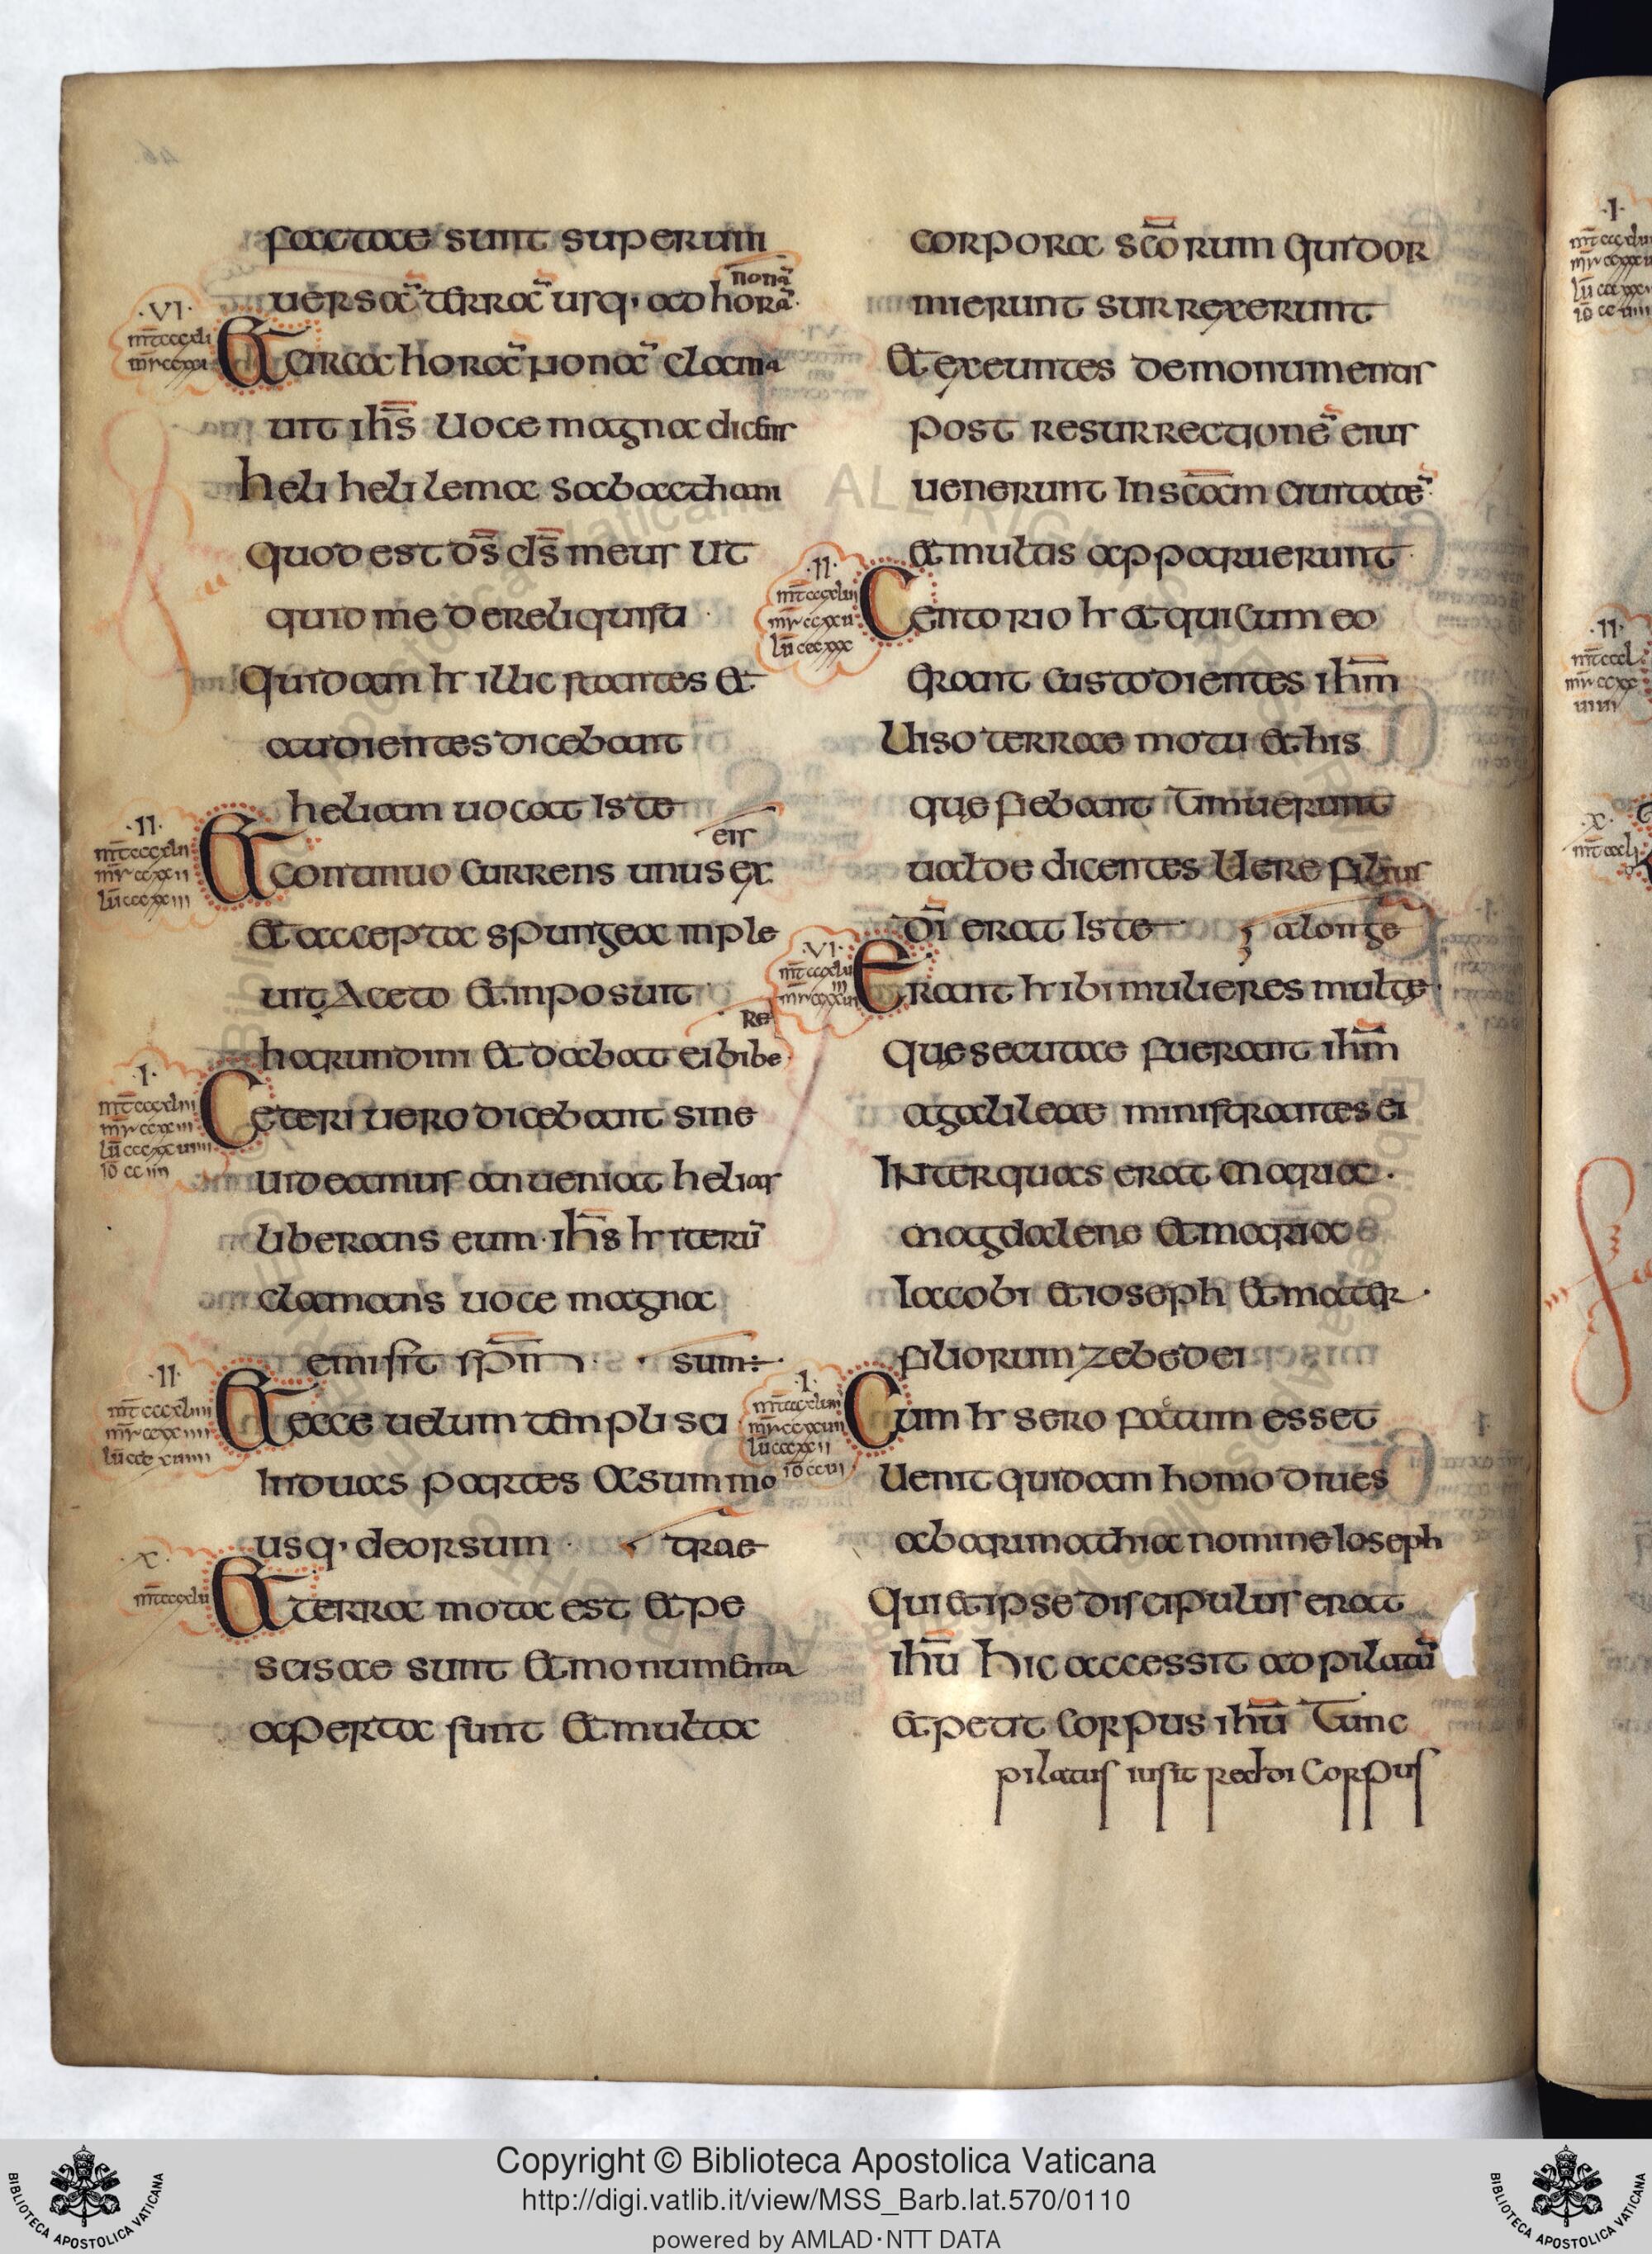 factae sunt super uni
nonā
uersā terrā usq· ad horā·
·VI·
mt̄cccxli
mr̄ccxxi
Et circa horā nonā clama
uit ih̄s uoce magna dicens
heli heli lema sabacthani
quod est d̄s d̄s meus ut
quid me dereliquisti
Quidam ħ illic stantes et
audientes dicebant
heliam uocat iste
eis
·II·
mt̄cccxlii
mr̄ccxxii
Et continuo currens unus ex
et accepta spungea inple
uit aceto et inposuit
re
harundini et dabat ei bibe
·I·
mt̄cccxliii
Ceteri uero dicebant sine
uideamus an ueniat helias
liberans eum· ih̄s ħ iterū
clamans uoce magna
emisit sp̄m · sum÷
·II·
mt̄cccxliiii
Et ecce uelum templi sci
in duas partes a summo
usq· deorsum · trae
·x·
Et terra mota est et pe
scisae sunt et monumenta
aperta sunt et multa
corpora sc̄orum qui dor
mierunt surrexerunt
Et exeuntes de monumentis
post resurrectionē eius
uenerunt in sc̄am ciuitatē
et multis apparuerunt
·II·
Centorio ħ et qui cum eo
erant custodientes ih̄m
Uiso terrae motu et his
quę fiebant timuerunt
ualde dicentes uere filius
dī erat iste a longe
·VI·
Erant ħ ibi mulieres multę
Quę secutae fuerant ih̄m
a galileae ministrantes ei
Inter quas erat maria·
magdalene et maria
Iacobi et ioseph et mater·
filiorum zebedei
·I·
Cum ħ sero factum esset
Uenit quidam homo diues
ab arimathia nomine ioseph
Qui et ipse discipulus erat
ih̄u hic accessit ad pilatū
et petit corpus ih̄u Tunc
pilatus iusit reddi corpus
Copyright © Biblioteca Apostolica Vaticana
http://digi.vatlib.it/view/MSS_Barb.lat.570/0110
powered by AMLAD·NTT DATA
BIBLIOTECA APOSTOLICA VATICANA
BIBLIOTECA APOSTOLICA VATICANA